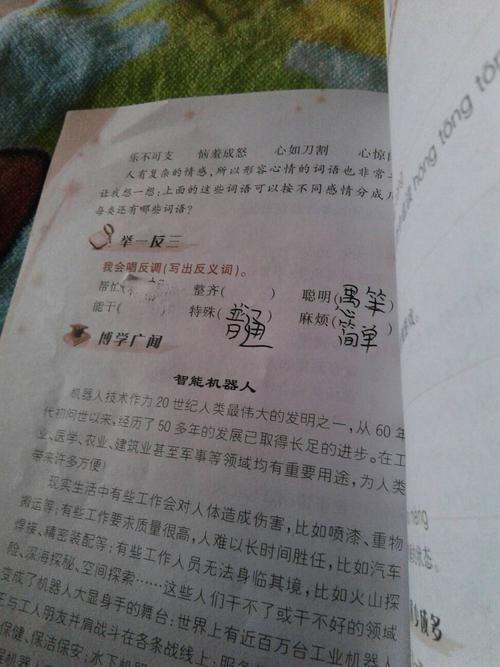 乐不可支 恼羞成怒 心如刀割 心惊
人有复杂的情感,所以形容心情的词语也非常
让我想一想:上面的这些词语可以按不同感情分成
每类还有哪些词语?
举一反三
我会唱反调(写出反义词)。
帮忙( ) 整齐( ) 聪明(愚笨)
能干( ) 特殊(普通) 麻烦(简单)
博学广闻
智能机器人
机器人技术作为20世纪人类最伟大的发明之一,从60年
代初问世以来,经历了50多年的发展已取得长足的进步。在工
业、医学、农业、建筑业甚至军事等领域均有重要用途,为人类
带来许多方便!
现实生活中有些工作会对人体造成伤害,比如喷漆、重物
搬运等;有些工作要求质量很高,人难以长时间胜任,比如汽车
焊接、精密装配等;有些工作人员无法身临其境,比如火山探
险、深海探秘、空间探索……这些人们干不了或干不好的领域
变成了机器人大显身手的舞台:世界上有近百万台工业机器人
正与工人朋友并肩战斗在各条战线上;服务
保健、保洁保安;水下机器
nong tōng tōn